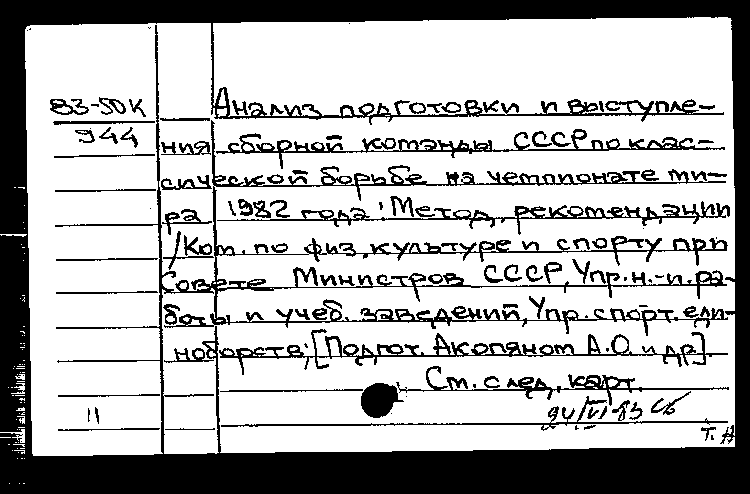 83-50К
944
Анализ подготовки и выступле-
ния сборной команды СССР по клас-
сической борьбе на чемпионате ми-
ра 1982 года: Метод. рекомендации
/Ком. по физ. культуре и спорту при
Совете Министров СССР, Упр. н.-и. ра-
боты и учеб. заведений, Упр. спорт. еди-
ноборств; [Подгот. Акопяном А.О. и др].
См. след. карт.
11
24/VI-83
Т. Н